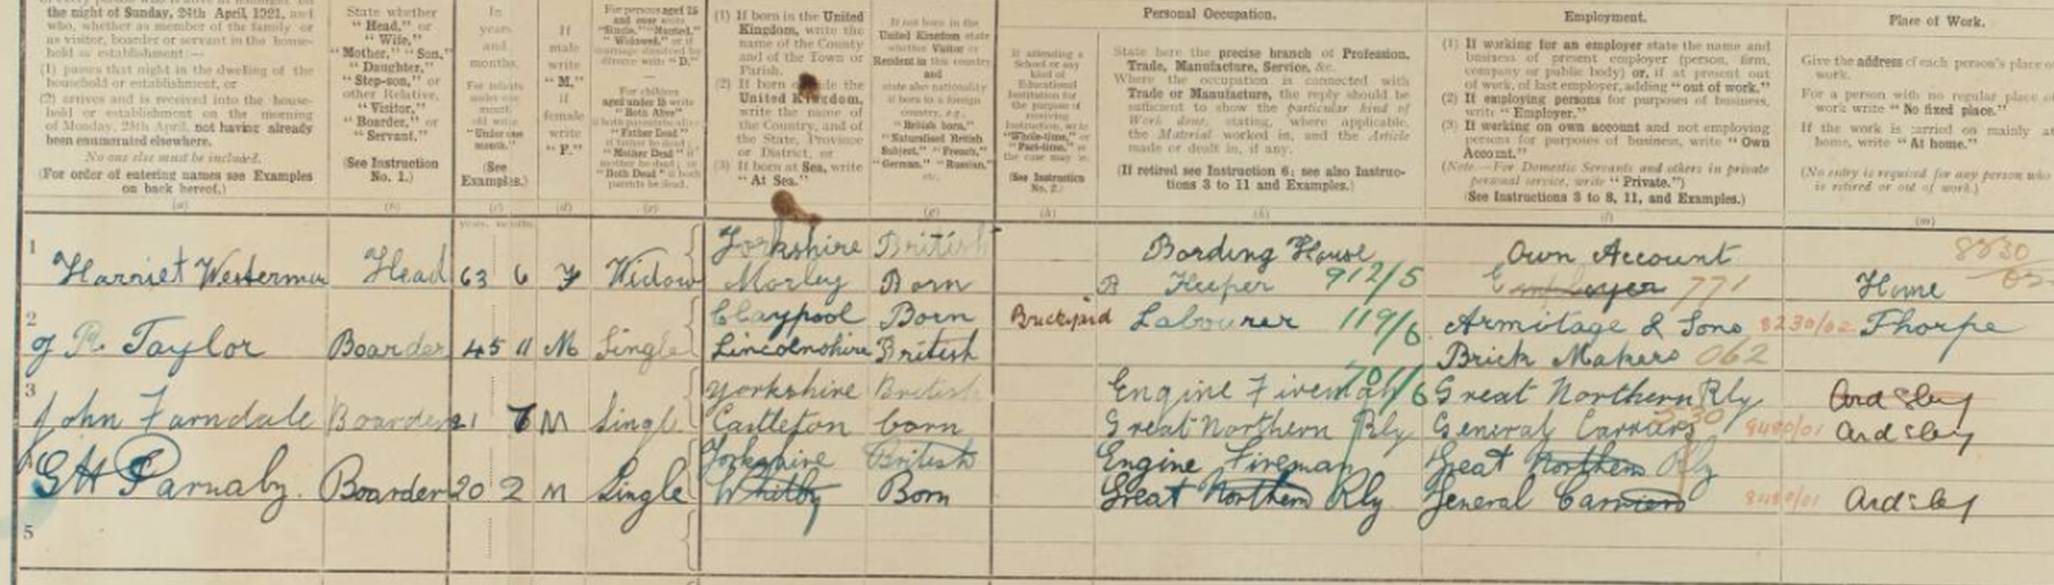 the night of Sunday, 24th April, 1921, and
who, whether as member of the family or
as visitor, boarder or servant in the house-
hold or establishment:—
(1) passes that night in the dwelling of the
household or establishment, or
(2) arrives and is received into the house-
hold or establishment on the morning
of Monday, 25th April, not having already
been enumerated elsewhere.
No one else must be included.
(For order of entering names see Examples
on back hereof.)
(a)
State whether
"Head," or
"Wife,"
"Mother," "Son,"
"Daughter,"
"Step-son," or
other Relative,
"Visitor,"
"Boarder," or
"Servant."
(See Instruction
No. 1.)
(b)
In
years
and
months.
For infants
under one
month
write
"Under one
month."
(See
Examples.)
(c)
If
male
write
"M,"
if
female
write
"F."
(d)
For persons aged 15
and over write
"Single," "Married,"
"Widowed," or if
marriage dissolved by
divorce write "D."
For children
aged under 15 write
"Both Alive"
if both parents alive
"Father Dead"
if father be dead
"Mother Dead" if
mother be dead, or
"Both Dead" if both
parents be dead.
(e)
(1) If born in the United
Kingdom, write the
name of the County
and of the Town or
Parish.
(2) If born outside the
United Kingdom,
write the name of
the Country, and of
the State, Province
or District, or
(3) If born at Sea, write
"At Sea."
If not born in the
United Kingdom state
whether Visitor or
Resident in this country
and
state also nationality
if born in a foreign
country, e.g.,
"British born,"
"Naturalised British
Subject," "French,"
"German," "Russian,"
etc.
(g)
If attending a
School or any
kind of
Educational
Institution for
the purpose of
receiving
instruction, write
"Whole-time," or
"Part-time," as
the case may be.
(See Instruction
No. 2.)
(h)
Personal Occupation.
State here the precise branch of Profession,
Trade, Manufacture, Service, &c.
Where the occupation is connected with
Trade or Manufacture, the reply should be
sufficient to show the particular kind of
Work done, stating, where applicable,
the Material worked in, and the Article
made or dealt in, if any.
(If retired see Instruction 6; see also Instruc-
tions 3 to 11 and Examples.)
(k)
Employment.
(1) If working for an employer state the name and
business of present employer (person, firm,
company or public body) or, if at present out
of work, of last employer, adding "out of work."
(2) If employing persons for purposes of business,
write "Employer."
(3) If working on own account and not employing
persons for purposes of business, write "Own
Account."
(Note.—For Domestic Servants and others in private
personal service, write "Private.")
(See Instructions 3 to 8, 11, and Examples.)
(l)
Place of Work.
Give the address of each person's place of
work.
For a person with no regular place of
work write "No fixed place."
If the work is carried on mainly at
home, write "At home."
(No entry is required for any person who
is retired or out of work.)
(m)
years. months.
1
Yorkshire British Bording House Own Account 8830
Harriet Westerman Head 63 6 F Widow Morley Born Keeper 912/5 Employer 771 Home
2
Claypool Born Brickyard Labourer 119/6 Armitage & Sons 8230/02 Thorpe
R Taylor Boarder 45 11 M Single Lincolnshire British Brick Makers 062
3
Yorkshire British Engine Fireman 701/6 Great Northern Rly Ardsley
John Farndale Boarder 21 M Single Castleton born Great Northern Rly General Carriers 8480/01 Ardsley
Yorkshire British Engine Fireman Great Northern Rly
GH Parnaby. Boarder 20 2 M Single Whitby Born Great Northern Rly General Carriers 8480/01 Ardsley
5